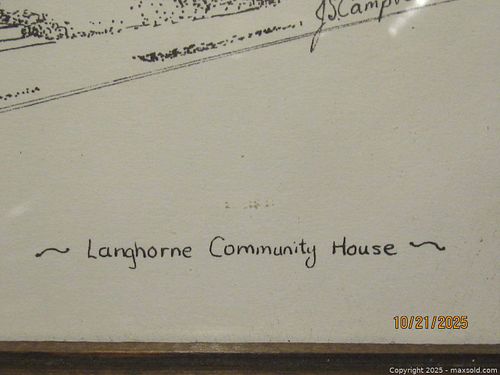 ~ Langhorne Community House ~
10/21/2025
Copyright 2025 - maxsold.com